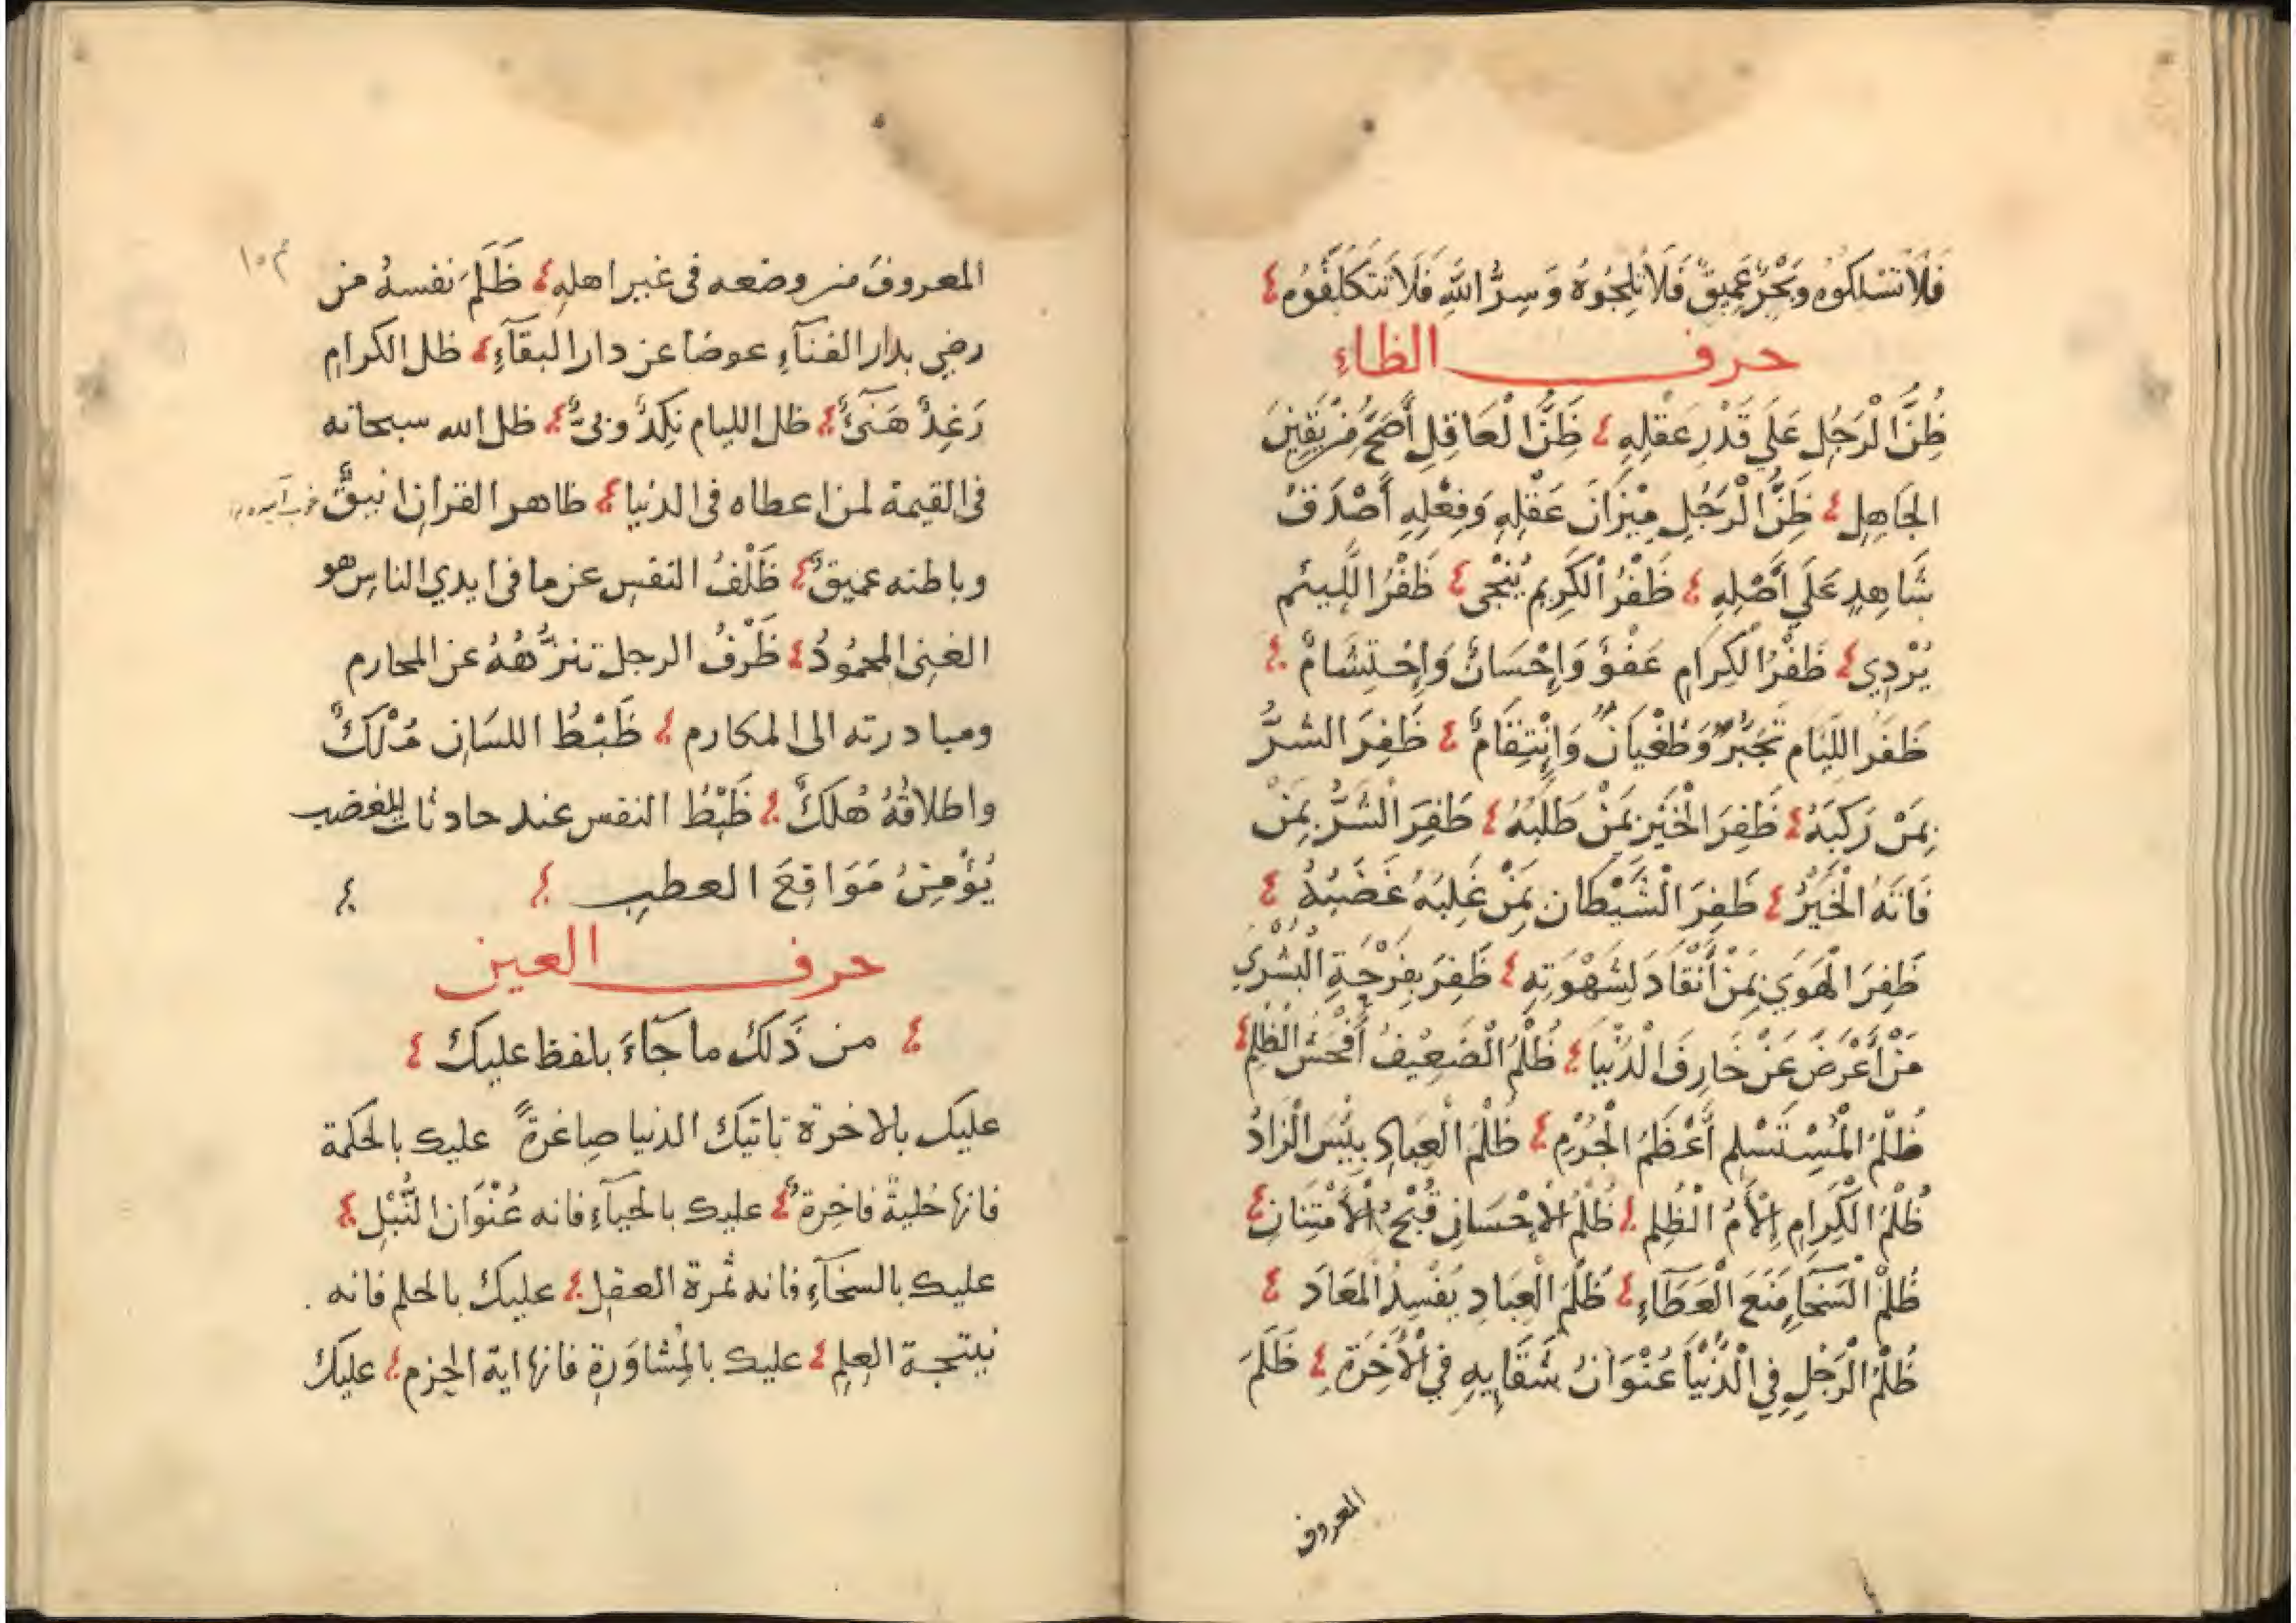 فَلَا تَسْلِكُوهُ وَبَحْرٌ عَمِيقٌ فَلَا تَلِجُوهُ وَسِرُّ اللَّهِ فَلَا تَتَكَلَّفُوهُ
حرف الظاءِ
ظَنُّ الْرَجُلِ عَلَي قَدْرِ عَقْلِهِ ظَنُّ الْعَاقِلِ أَصَحُّ مِنْ يَقِينِ
الجَاهِلِ ظَنُّ الْرَجُلِ مِيْزَانُ عَقْلِهِ وَفِعْلِهِ أَصْدَقُ
شَاهِدٍ عَلَي أَصْلِهِ ظَفْرُ الْكَرِيمِ يُنْجٰى ظَفْرُ اللَّئيم
يُرْدِي ظَفْرُ الْكِرَامِ عَفْوٌ وَإِحْسَانٌ وَإِحْتِشَامٌ
ظَفَرُ اللِّيَام تَجَبُّرٌ وَطُغْيَانٌ وَإِنْتِقَامٌ ظَفِرَ الشرُّ
بِمَنْ رَكِبَهُ ظَفِرَ الْخَيْرُ بِمَنْ طَلَبَهُ ظَفِرَ الْشَرُّ بِمَنْ
فَاتَهُ الْخَيْرُ ظَفِرَ الْشَيْطَان بِمَنْ غَلِبَهُ غَضَبُهُ
ظَفِرَ الْهَوَي بِمَنْ أَنْقَادَ لِشَهْوَتِهِ ظَفِرَ بِفَرْحَةِ الْبُشْرَي
مَنْ أَعْرَضَ عَنْ خَارِفَ الْدُنْيَا ظُلْمُ الْضَعِيفُ أَفْحَشُ الْظُلْمِ
ظُلْمُ الْمُسْتَسْلِم أَعْظَمُ الْجُرْمِ ظُلْمُ الْعِبَادِ بِئْسَ الْزَادُ
ظُلْمُ الْكَرَامِ الْأَمُ الْظُلِم ظُلْمُ الْإِحْسَانِ قُبْحُ الْأَمْتِنَانِ
ظُلْمُ الْسَخَاءِ مَنَعَ الْعَطَآءِ ظُلْمُ الْعِبَادِ يُفْسِدُ الْمَعَادَ
ظُلْمُ الْرَجُلِ فِي الْدُنْيَا عُنْوَانُ شَقَايِهِ فِي الْأَخِرَةِ ظَلَمَ
المعروف
م ١٥
المعروفَ من وضعه فى غير اهلهِ ظَلَمَ نفسهُ من
رضي بدار الفنآءِ عوضا عن دار البقآءِ ظل الكرامِ
رَغِدٌ هَنَىٌٔ ظل الليام نَكِدٌ وَبىٌّ ظل الله سبحانه
فى القيمة لمن اعطاه فى الدنيا ظاهر القران انيقٌ
وباطنه عميقٌ ظَلْفُ النفسِ عن ما فى ايدي الناس هو
الغنِى المحمُودُ ظَرْفُ الرجل تنزُّهُهُ عن المحارم
ومبادرته الى المكارم ظَبْطُ اللسَانِ مُلْكٌ
واطلاقُهُ هُلكٌ ظَبْطُ النفس عند حادثات الغضب
يُؤْمِنُ مَوَاقِعَ العطبِ
حرف العين
من ذَلكَ ما جَآءَ بلفظ عليكَ
عليك بالاخرة تاتيك الدنيا صاغرةً عليك بالحكمة
فانها حُليةٌ فاخِرةٌ عليك بالحيآءِ فانه عُنْوَان النُّبْلِ
عليك بالسخآءِ فانه ثمرة العقل عليكَ بالحلم فانه
نيتجة العِلِم عليك بالمُشاوَرةِ فانها اية الحِزم عليك